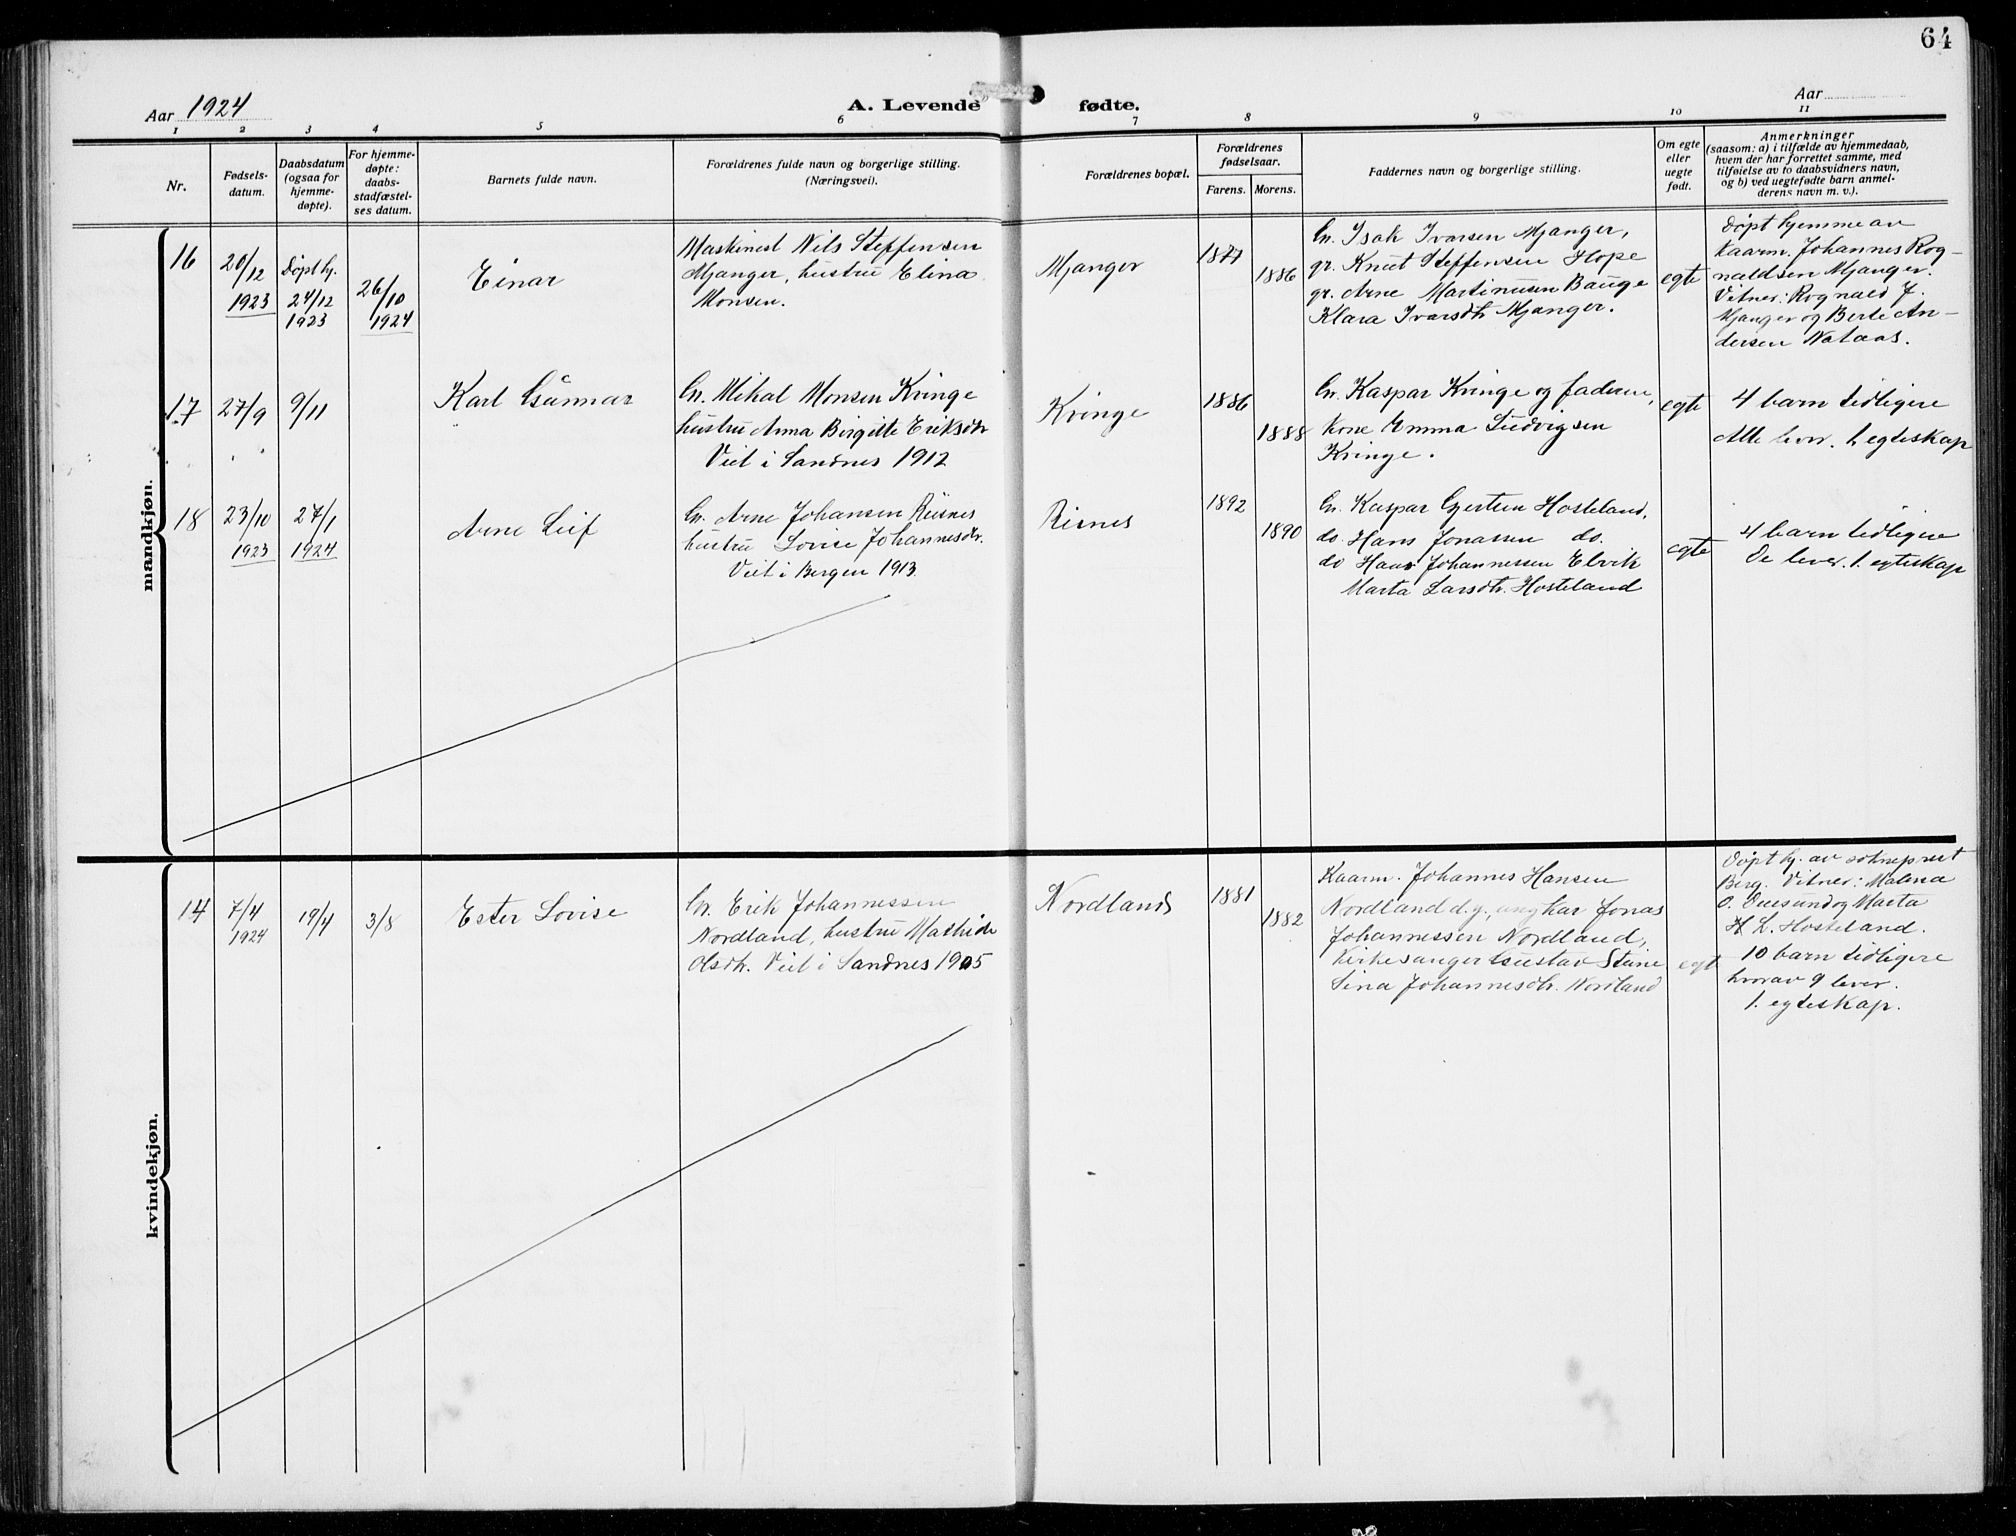 64
Aar 1924
A. Levende fødte.
Aar
1 2 3 4 5 6 7 8 9 10 11
Nr.
Fødsels-
datum.
Daabsdatum
(ogsaa for
hjemme-
døpte).
For hjemme-
døpte:
daabs-
stadfæstel-
ses datum.
Barnets fulde navn.
Forældrenes fulde navn og borgerlige stilling.
(Næringsvei).
Forældrenes bopæl.
Forældrenes
fødselsaar.
Farens. Morens.
Faddernes navn og borgerlige stilling.
Om egte
eller
uegte
født.
Anmerkninger
(saasom: a) i tilfælde av hjemmedaab,
hvem der har forrettet samme, med
tilføielse av to daabsvidners navn,
og b) ved uegtefødte barn anmel-
derens navn m. v.).
mandkjøn.
16
20/12
1923
Døpt hj.
24/12
1923
26/10
1924
Einar
Maskinest Nils Steffensen
Mjanger, hustru Elina
Monsen.
Mjanger
1877
1886
Gn. Isak Ivarsen Mjanger,
gr. Knut Steffensen Hope
gr. Arne Martinusen Bauge
Klara Ivarsdtr Mjanger.
egte
Døpt hjemme av
Kaarm. Johannes Rog-
naldsen Mjanger.
Vitner: Rognald J.
Mjanger og Berte An-
dersen Nataas.
17
27/9
9/11
Karl Gunnar
Gn. Mikal Monsen Kringe
hustru Anna Birgitte Eriksdtr
Viet i Sandnes 1912
Kringe
1886
1888
Gn. Kaspar Kringe og faderen,
Kone Emma Ludvigsen
Kringe.
egte
4 barn tidligere
Alle lever. 1. egteskap
18
23/10
1923
27/1
1924
Arne Leif
Gn. Arne Johansen Riisnes
hustru Lovise Johannesdtr.
Viet i Bergen 1913.
Risnes
1892
1890
Gn. Kaspar Gjertsen Hosteland,
do. Hans Jonassen do.
do Hans Johannessen Elvik
Marta Larsdtr. Hosteland
egte
4 barn tidligere
De lever. 1. egteskap
kvindekjøn.
14
7/4
1924
19/4
3/8
Ester Lovise
Gn. Erik Johannessen
Nordland, hustru Mathide
Olsdtr. Viet i Sandnes 1905
Nordland
1881
1882
Kaarm. Johannes Hansen
Nordland d.y., ungkar Jonas
Johannessen Nordland,
Kirkesanger Gustav Steine
Sina Johannesdtr. Nordland
egt
Døpt hj. av sokneprest
Berg. Vitner: Malena
O. Duesund og Marta
H L. Hosteland.
10 barn tidligere
hvorav 9 lever.
1. egteskap.